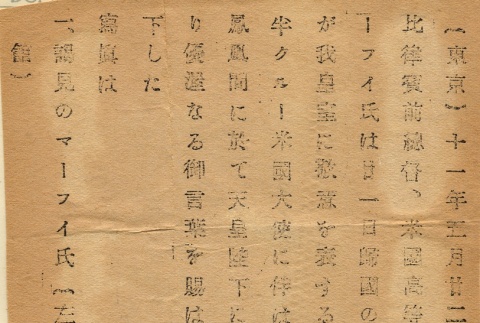 (東京)十一年五月廿二
比律賓前總督、米國高等
ーフイ氏は廿一日歸國の
が我皇室に敬意を表する
半グルー米國大使に伴は
鳳凰間に於て天皇陛下に
り優渥なる御言葉を賜は
下した
寫眞は
一、謁見のマーフイ氏(左
館)